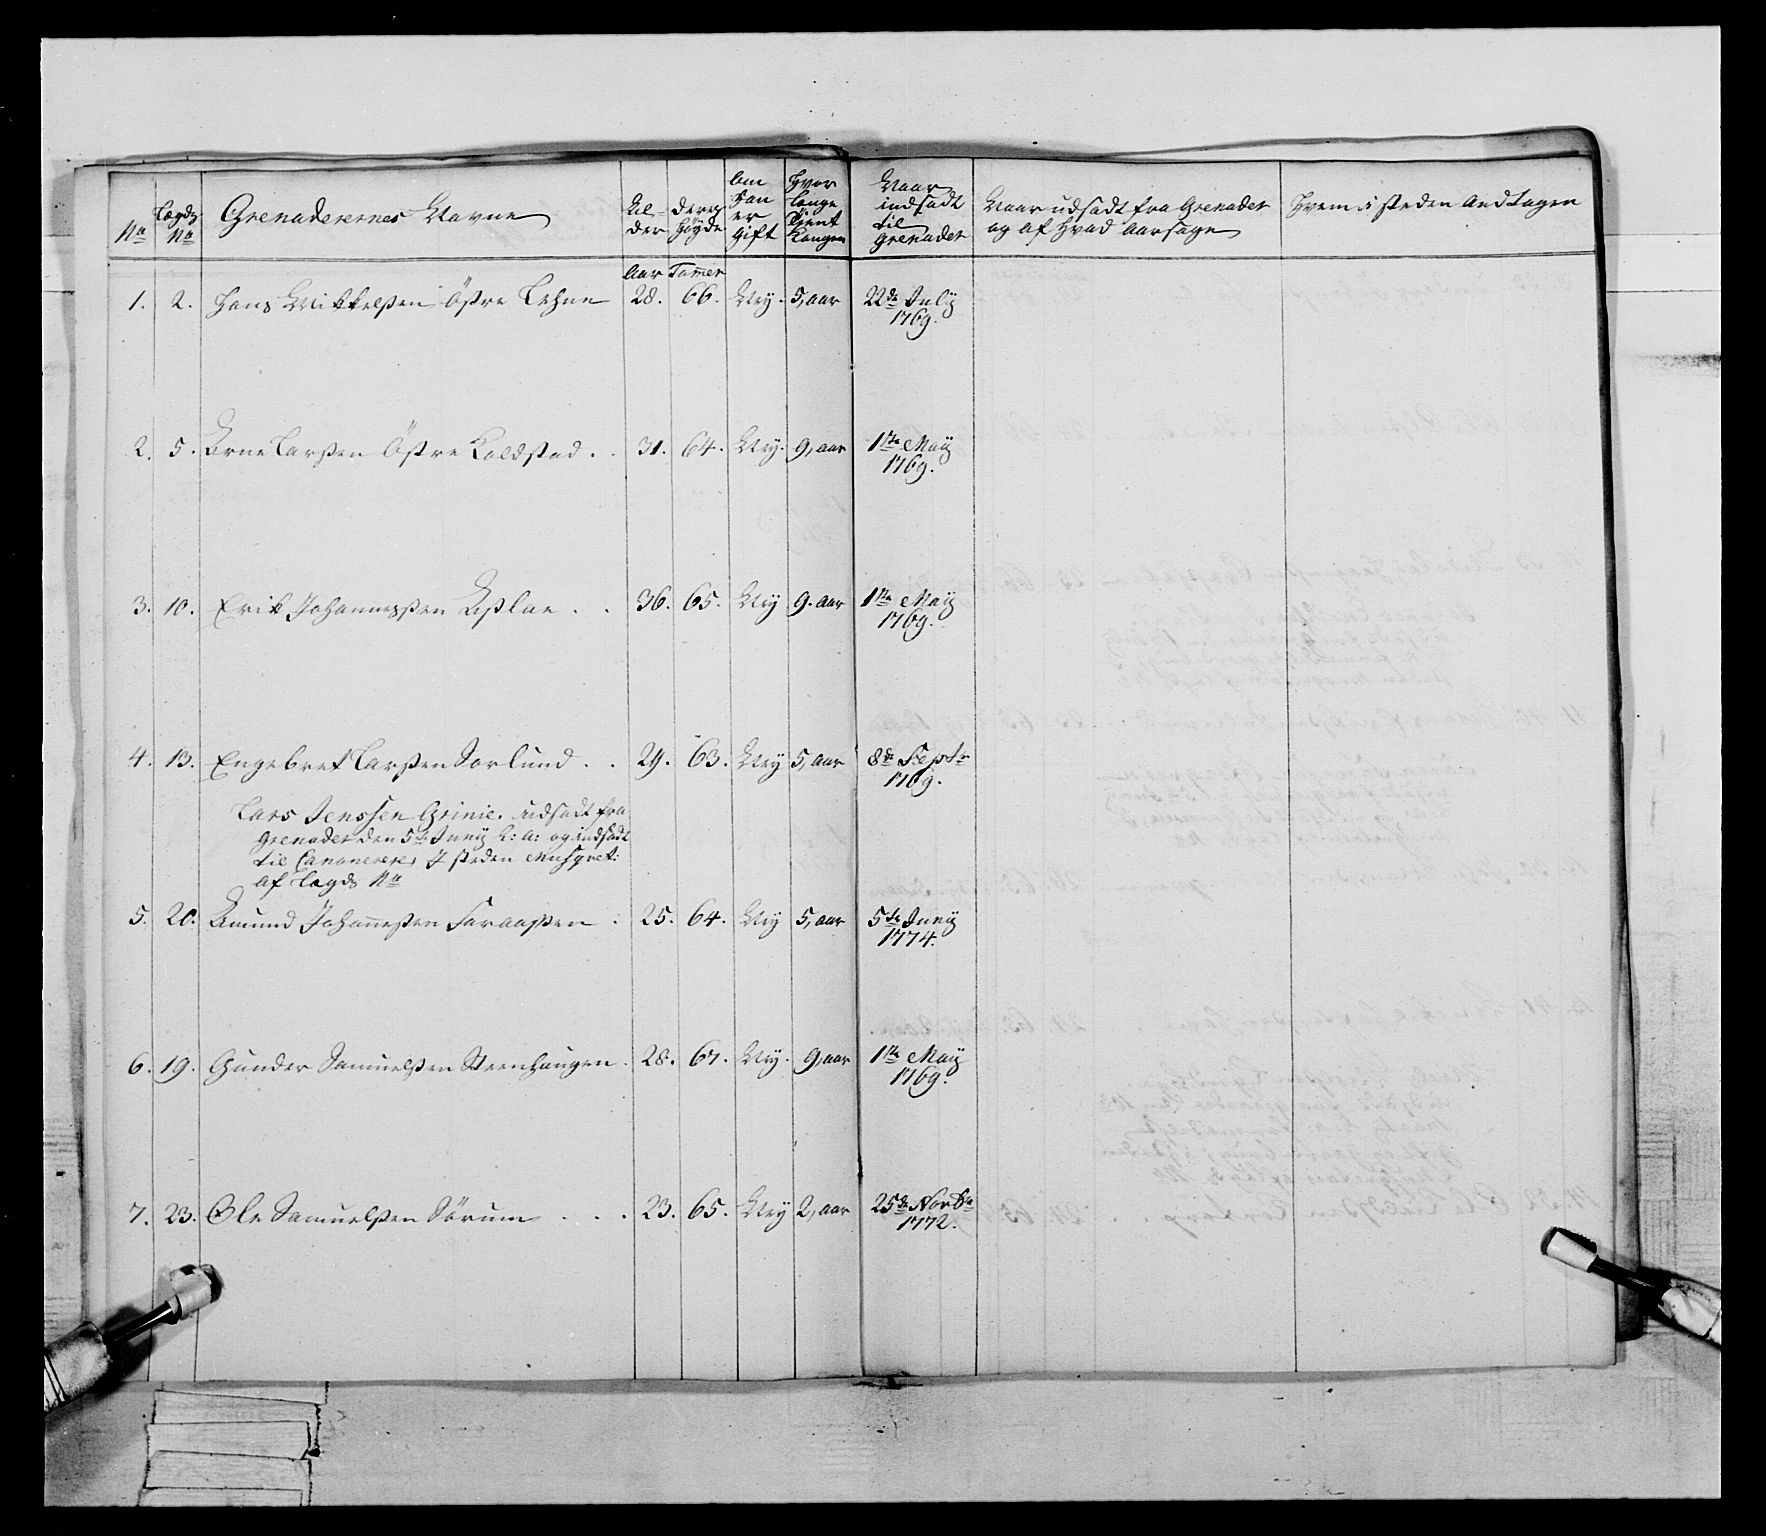 No Lægds No Grenaderernes Navne Al- der Deres Høyde Om han er Gift Hvor længe tient Kongen Naar indsadt til Grenader Naar udsadt fra Grenader og af Hvad Aarsage Hvem i steden Andtagen
Aar Tomer
1. 2. Hans Mikkelsen Østre Lehne 28. 66. Ney. 5, aar 22de July
1769.
2. 5. Arne Larsen Østre Kaldstad . . 31. 64. Ney. 9, aar 1ste May
1769.
3. 10. Erik Johannessen . . 36. 65. Ney 9. aar 1ste May
1769.
4. 13. Engebret Larsen Sorlund . . 29. 63. Ney 5, aar 8de Septr
1769.
Lars Jenssen Grinie. udsadt fra
Grenader den 5te Juny h: a: og indsadt
til Canonerere, I steden Musqvet:
af Lægds No
5. 20. Amund Johannesen . 25. 64. Ney 5, aar 5te Juny
1774.
6. 19. Gunder Samuelsen Steenhaugen . 28. 67. Ney. 9, aar 1ste May
1769.
7. 23. Ole Samuelsen Sørum . . . 23. 65. Ney 2, aar 25de Novbr
1772.